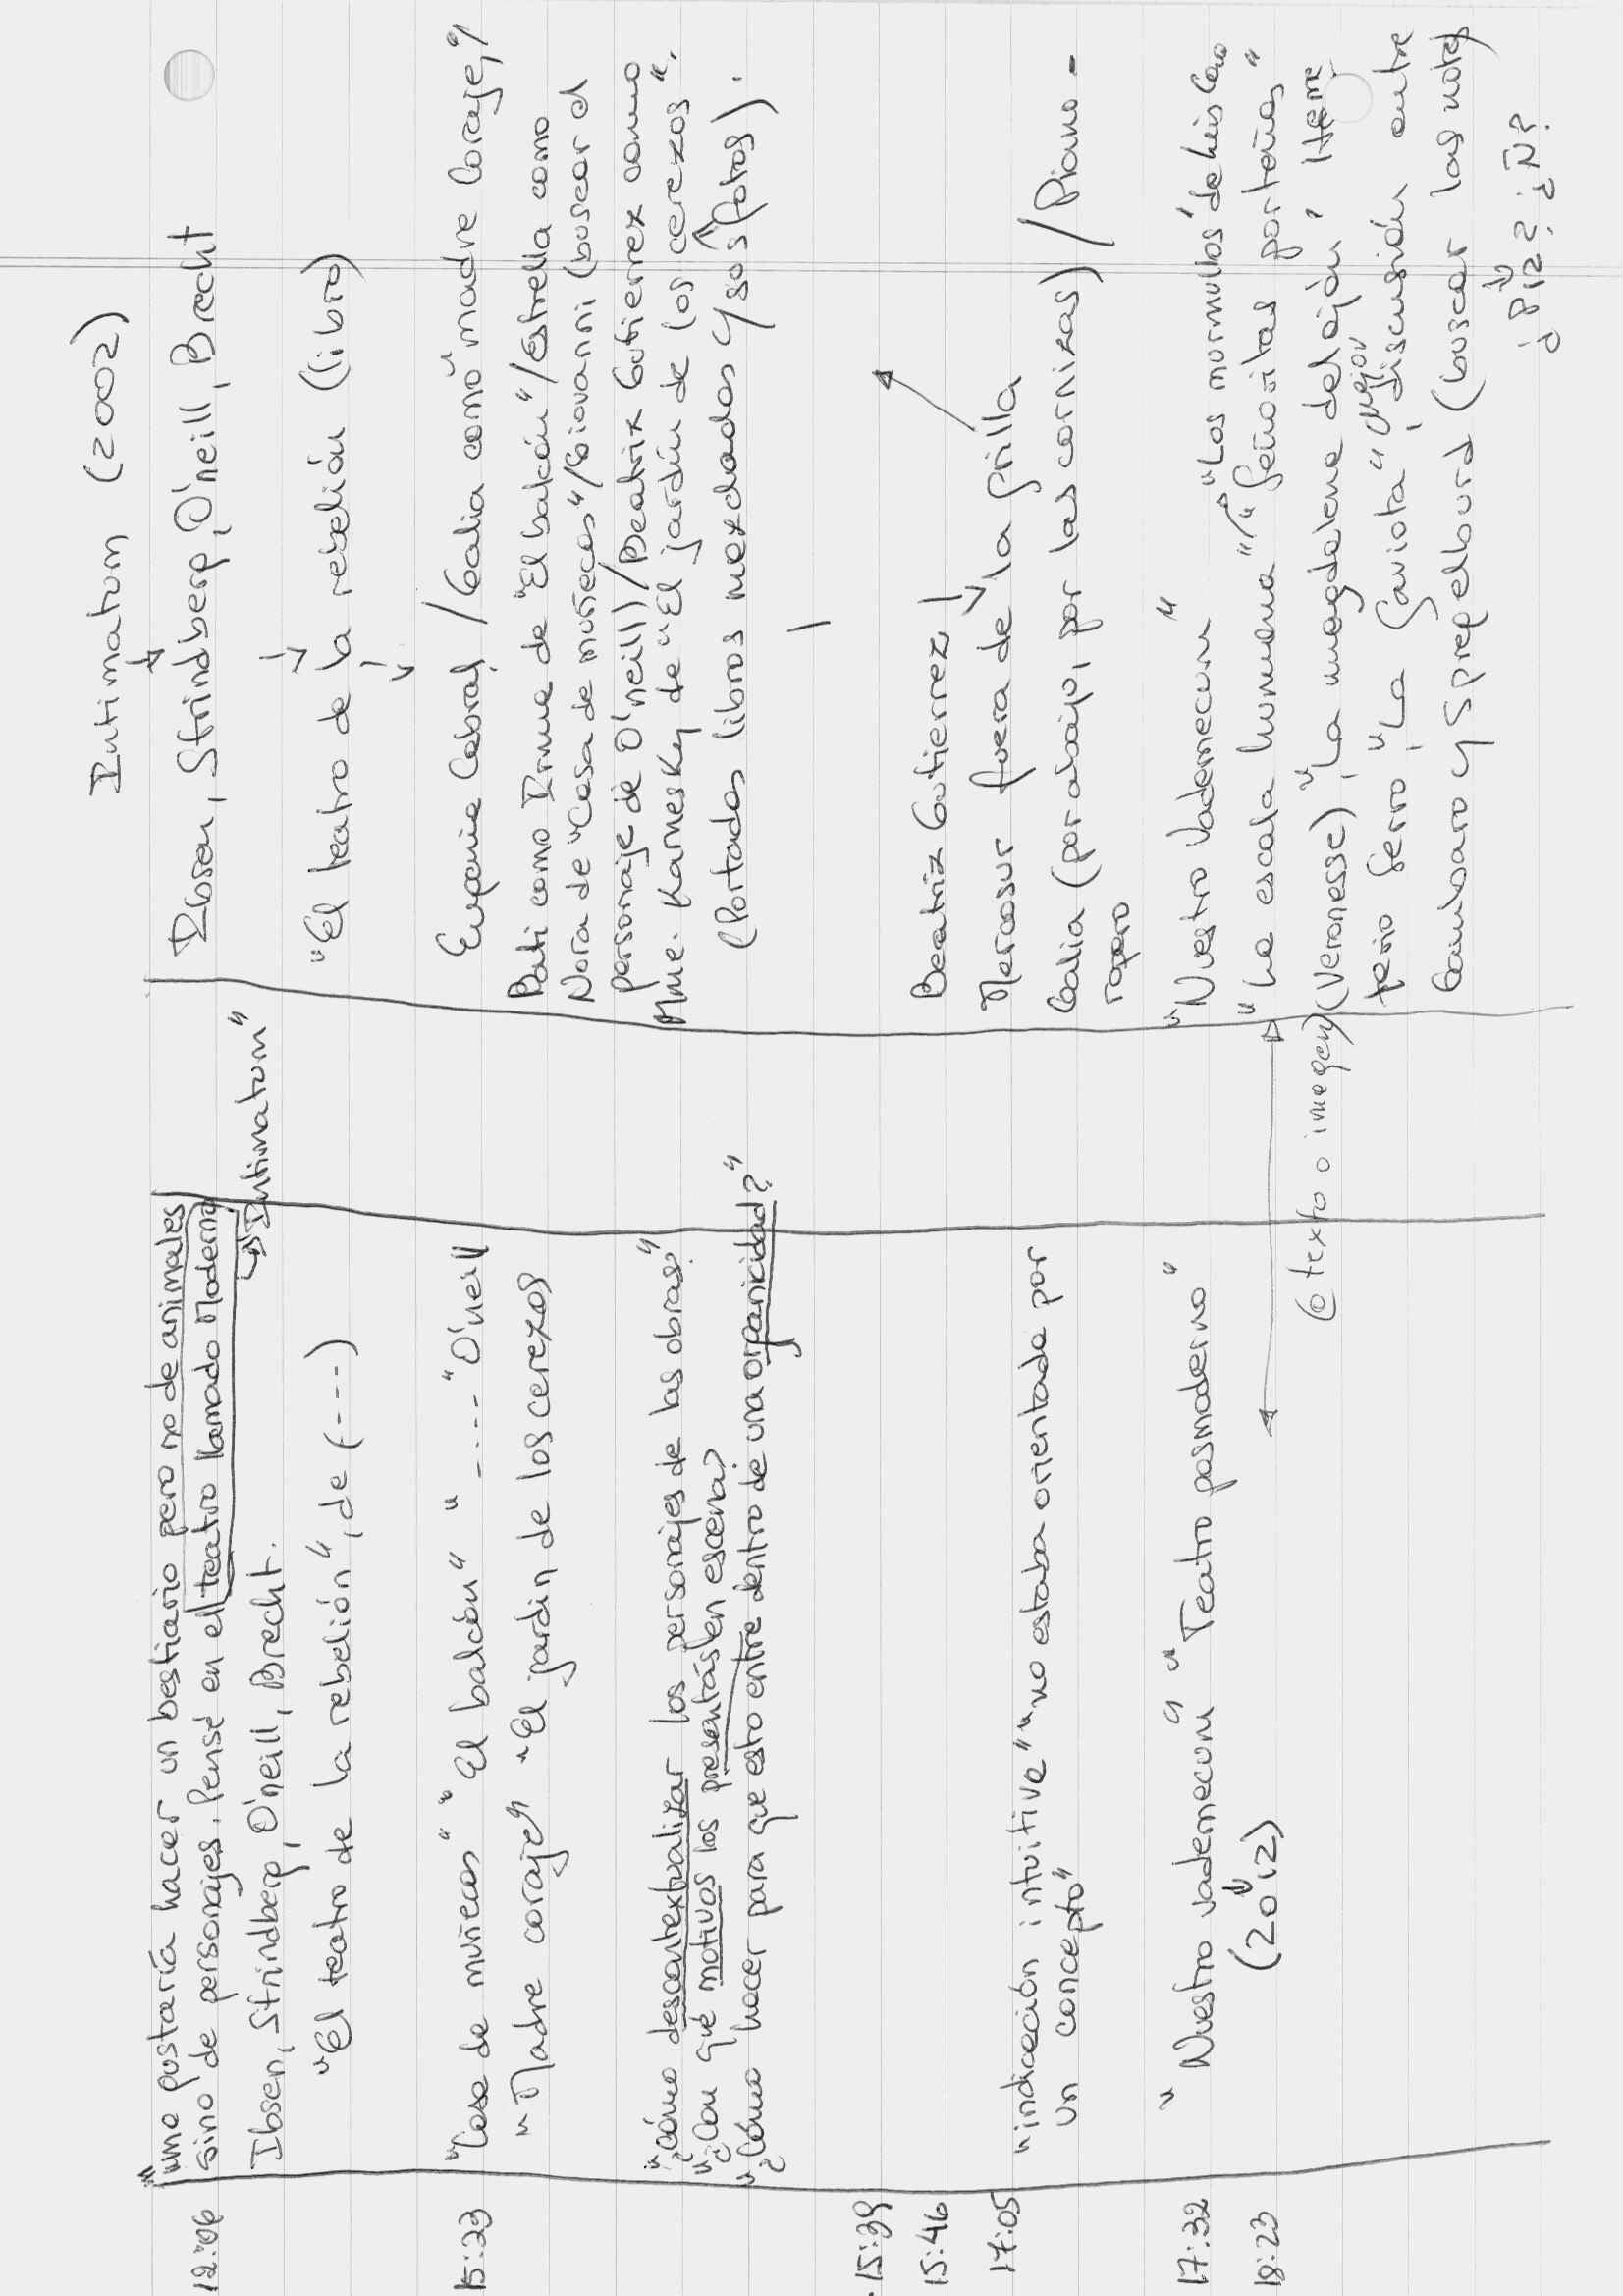 Intimatum (2002)
12:06
"me gustaría hacer un bestiario pero no de animales
sino de personajes. Pensé en el teatro llamado Moderno
→ "Intimatum"
Ibsen, Strindberg, O'neill, Brecht.
"El teatro de la rebelión", de (----)
Ibsen, Strindberg, O'neill, Brecht
"El teatro de la rebelión (libro)
15:23
"Casa de muñecas" "El balcón" "----" O'neill
"Madre coraje" "El jardín de los cerezos
Eugenia Cabral / Galia como "madre Coraje"/
Pati como Irma de "El balcón"/Estrella como
Nora de "Casa de muñecas"/Giovanni (buscar el
personaje de O'neill)/Beatriz Gutierrez como
Mme. Karnesky de "El jardín de los cerezos".
(Portadas libros mezclados y sus fotos).
"¿Cómo descontextualizar los personajes de las obras?"
"¿Con qué motivos los presentás en escena?
"¿Cómo hacer para que esto entre dentro de una organicidad?"
15:39
15:46
17:05
"indicación intuitiva" "no estaba orientada por
un concepto"
Beatriz Gutierrez
Mercosur fuera de la grilla
Galia (por abajo, por las cornizas) / Piano -
ropero
17:32
"Nuestro vademecum" "Teatro posmoderno"
18:23
(2012)
(e texto o imagen)
"Nuestro Vademecum"
"La escala humana" "Los murmullos" de Luis Cano
"Señoritas porteñas"
(Veronesse), "La magdalena del ojón",
"La Gaviota" mejor discusión entre
Gambaro y Spregelburd (buscar las notas)
¿P12? ¿Ñ?